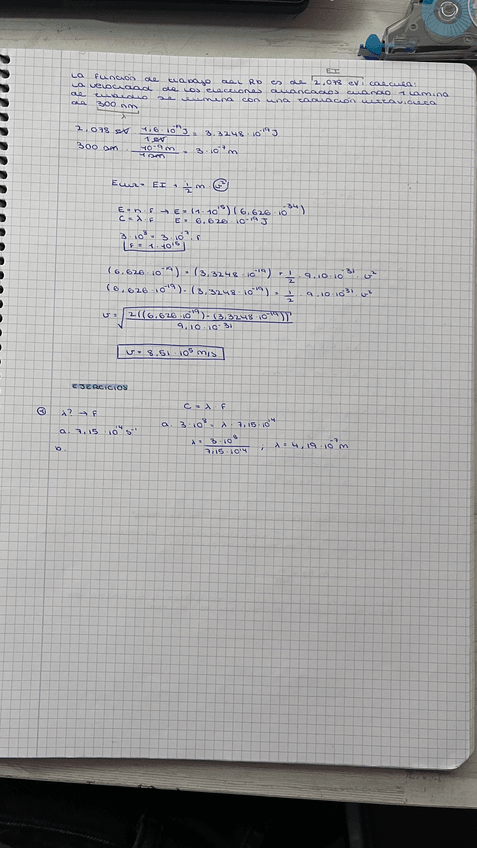 EI
La función de trabajo del Rb es de 2,078 eV. calcula:
La velocidad de los electrones arrancados cuando 1 lámina
de rubidio se ilumina con una radiación ultravioleta
de 300 nm
λ
2,078 eV · 1,6·10⁻¹⁹J / 1 eV = 3,3248·10⁻¹⁹J
300 nm · 10⁻⁹m / 1 nm = 3·10⁻⁷m
EI + 1/2 m · v²
E = h·F → E = (1·10¹⁵)(6,626·10⁻³⁴)
C = λ·F E = 6,626·10⁻¹⁹J
3·10⁸ = 3·10⁻⁷·F
F = 1·10¹⁵
(6,626·10⁻¹⁹) = (3,3248·10⁻¹⁹) + 1/2 · 9,10·10⁻³¹ · v²
(6,626·10⁻¹⁹) - (3,3248·10⁻¹⁹) = 1/2 · 9,10·10³¹ · v²
v = √ 2((6,626·10⁻¹⁹) - (3,3248·10⁻¹⁹)) / 9,10·10⁻³¹
v = 8,51·10⁵ m/s
EJERCICIOS
λ? → F
C = λ·F
a. 7,15·10¹⁴ s⁻¹
a. 3·10⁸ = λ · 7,15·10¹⁴
λ = 3·10⁸ / 7,15·10¹⁴ ; λ = 4,19·10⁻⁷m
b.